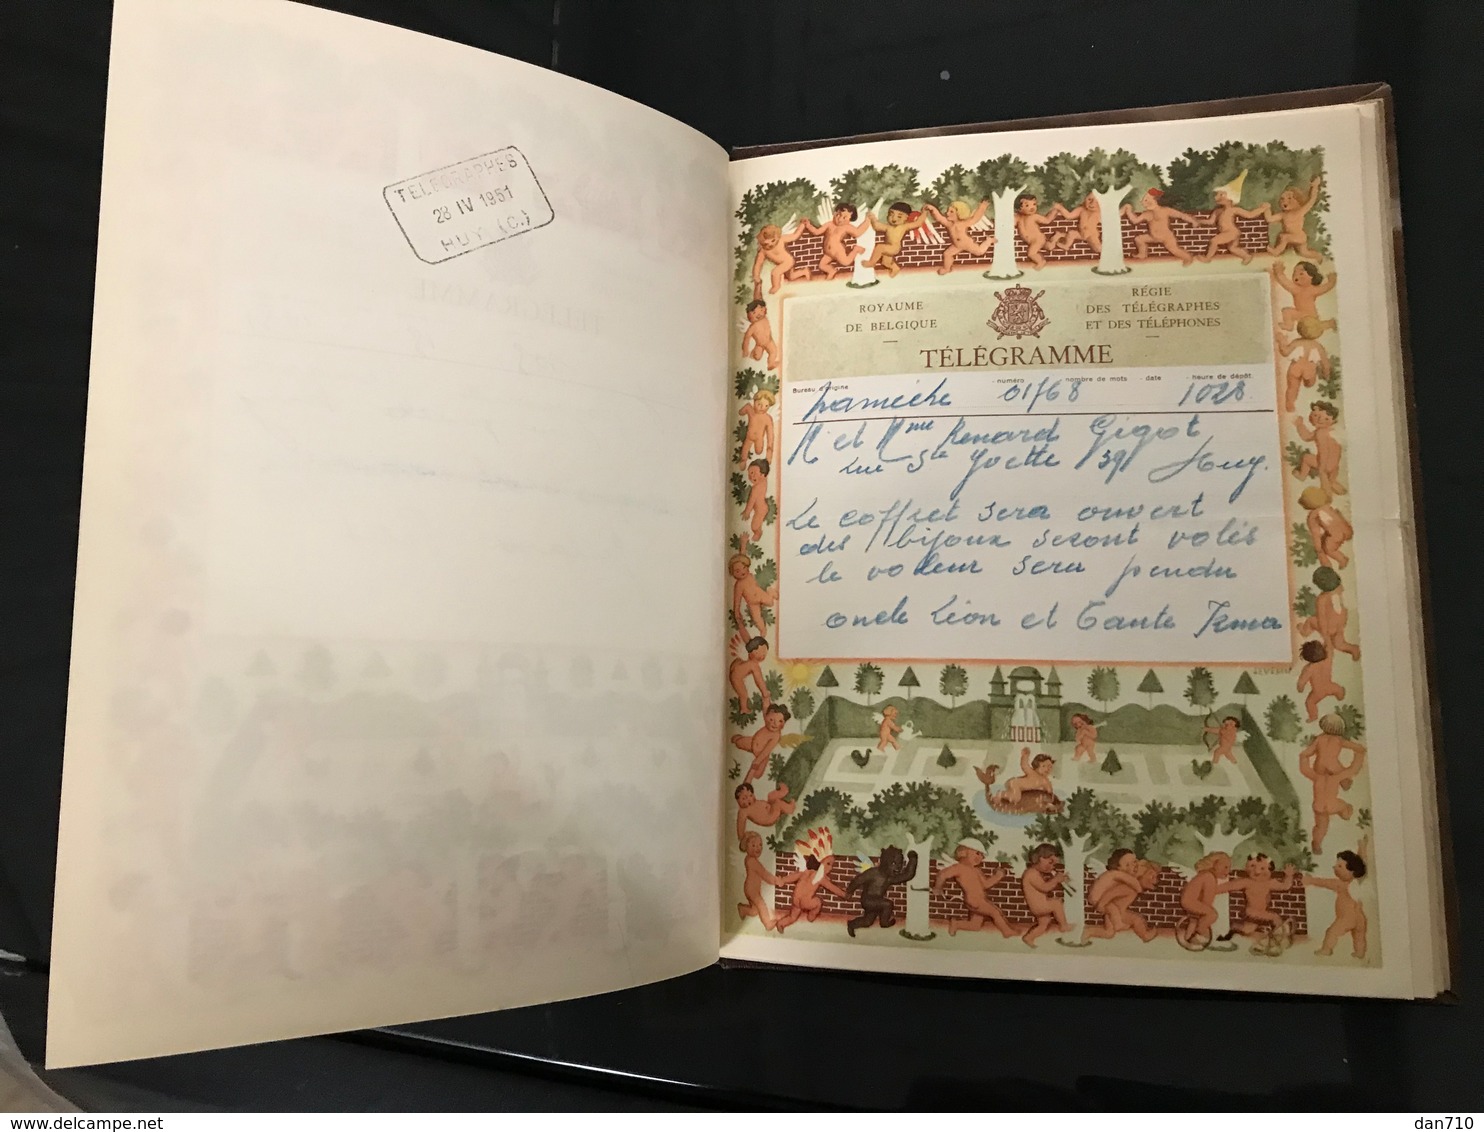 TELEGRAPHES
28 IV 1951
HUY (C.)
ROYAUME
DE BELGIQUE
RÉGIE
DES TÉLÉGRAPHES
ET DES TÉLÉPHONES
TÉLÉGRAMME
Bureau d'origine - numéro - nombre de mots - date - heure de dépôt
Namèche 01/68 1028
M et Mme Renard Gigot
rue Ste Yvette 39 Huy.
Le coffret sera ouvert
des bijoux seront volés
le voleur sera pendu
oncle Léon et Tante Irma
delcampe.net
dan710